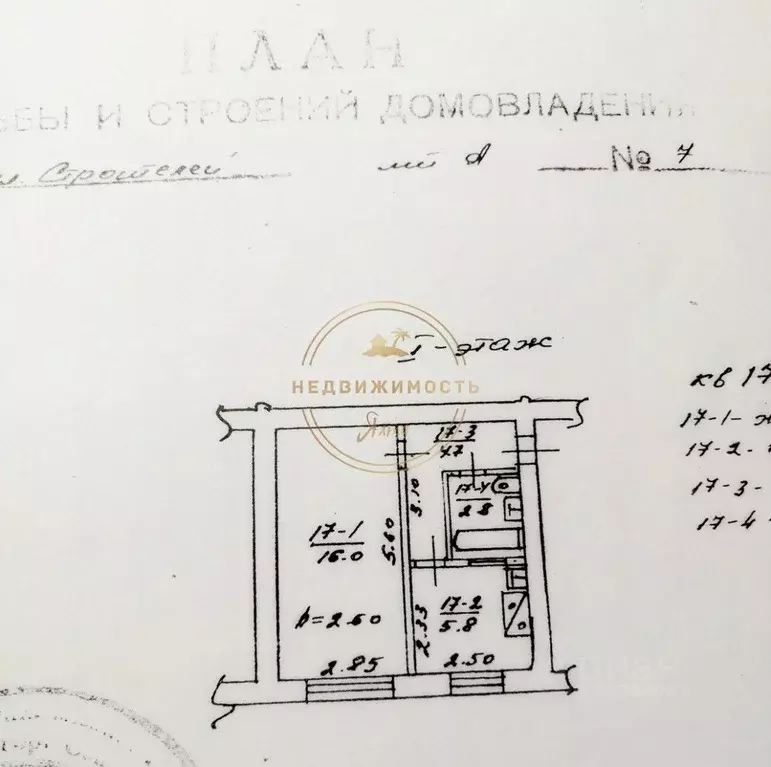 ПЛАН
ЬБЫ И СТРОЕНИЙ ДОМОВЛАДЕНИЯ
л. Строителей лит А № 7
I-этаж
НЕДВИЖИМОСТЬ
Ялта
кв 17
17-1- ж
17-2-
17-3-
17-4-
17-3
4.7
17-4
2.8
3.10
5.60
17-1
16.0
17-2
5.8
2.33
h=2.60
2.85
2.50